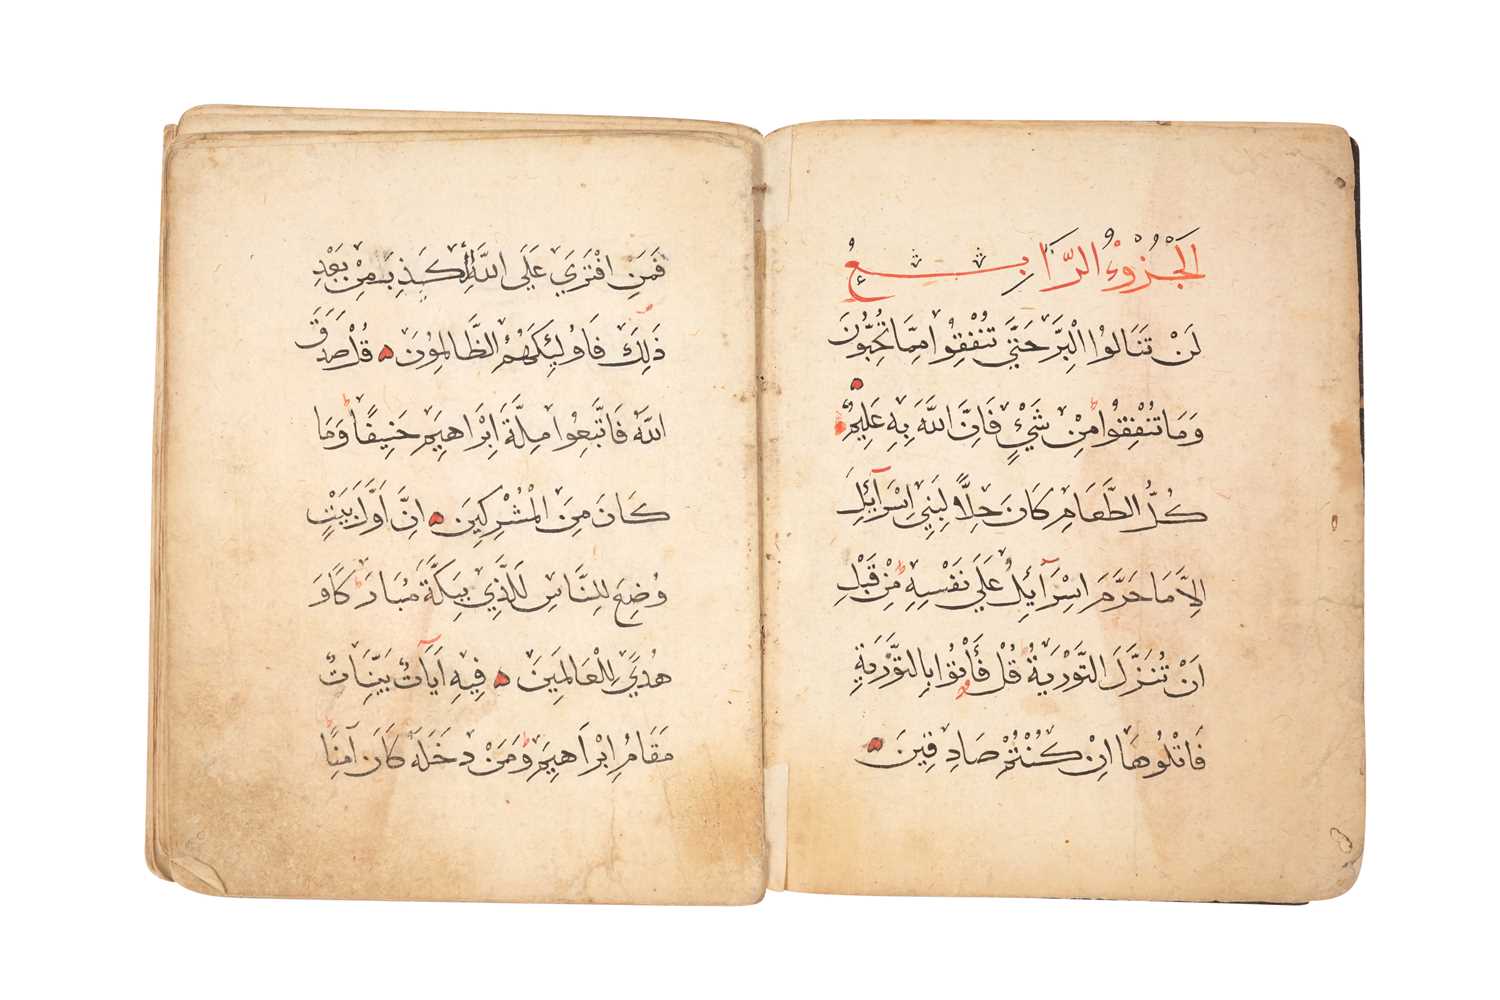 اَلْجُزْوءُ الرَّابِعُ
لَنْ تَنَالُوا الْبِرَّ حَتَّي تُنْفِقُوا مِمَّا تُحِبُّونَ
وَمَا تُنْفِقُوا مِنْ شَيْءٍ فَاِنَّ اللّٰهَ بِهِ عَلِيمٌ
كُلُّ الطَّعَامِ كَانَ حِلًّا لِبَنِي اِسْرَآئِلَ
اِلَّا مَا حَرَّمَ اِسْرَآئِلُ عَلَي نَفْسِهِ مِنْ قَبْلِ
اَنْ تُنَزَّلَ التَّوْرٰيةُ قُلْ فَأْتُوا بِالتَّوْرٰيةِ
فَاتْلُوهَا اِنْ كُنْتُمْ صَادِقِينَ
فَمَنِ افْتَرَي عَلَي اللّٰهِ الْكَذِبَ مِنْ بَعْدِ
ذَلِكَ فَاُولَئِكَ هُمُ الظَّالِمُونَ قُلْ صَدَقَ
اللّٰهُ فَاتَّبِعُوا مِلَّةَ اِبْرَاهِيمَ حَنِيفًا وَمَا
كَانَ مِنَ الْمُشْرِكِينَ اِنَّ اَوَّلَ بَيْتٍ
وُضِعَ لِلنَّاسِ لَلَّذِي بِبَكَّةَ مُبَارَكًا وَ
هُدًي لِلْعَالَمِينَ فِيهِ آيَاتٌ بَيِّنَاتٌ
مَقَامُ اِبْرَاهِيمَ وَمَنْ دَخَلَهُ كَانَ آمِنًا